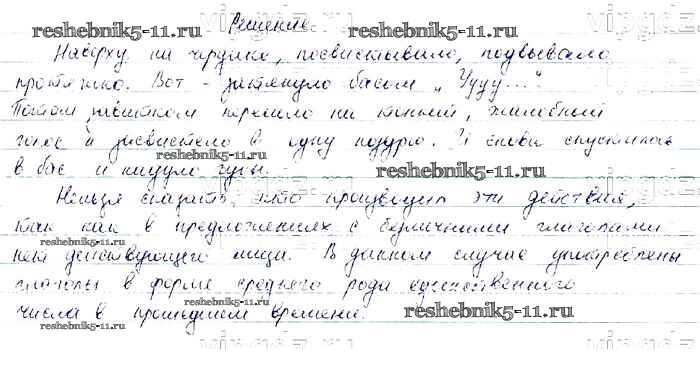 Решение.
Наверху на чердаке, посвистывало, подвывало
протяжно. Вот - затянуло басом „Уууу...“
Потом завитком перешло на тонкий, жалобный
голос и засвистело в одну ноздрю. И снова спустилось
в бас и надуло губы.
Нельзя сказать, кто производит эти действия,
так как в предложениях с безличными глаголами
нет действующего лица. В данном случае употреблены
глаголы в форме среднего рода единственного
числа в прошедшем времени.
reshebnik5-11.ru
reshebnik5-11.ru
reshebnik5-11.ru
reshebnik5-11.ru
reshebnik5-11.ru
reshebnik5-11.ru
reshebnik5-11.ru
reshebnik5-11.ru
reshebnik5-11.ru